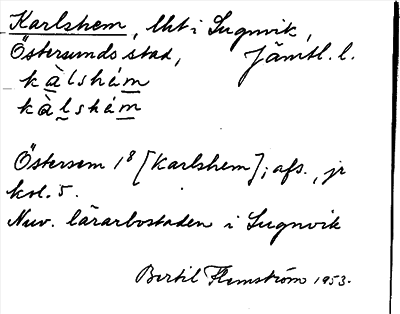 Karlshem, lht i Lugnvik,
Östersunds stad, Jämtl. l.
kàlshám
kàlshám
Östersem 18 [Karlshem]; afs., jr
kol. 5.
Nuv. lärarbostaden i Lugnvik
Bertil Flemström 1953.